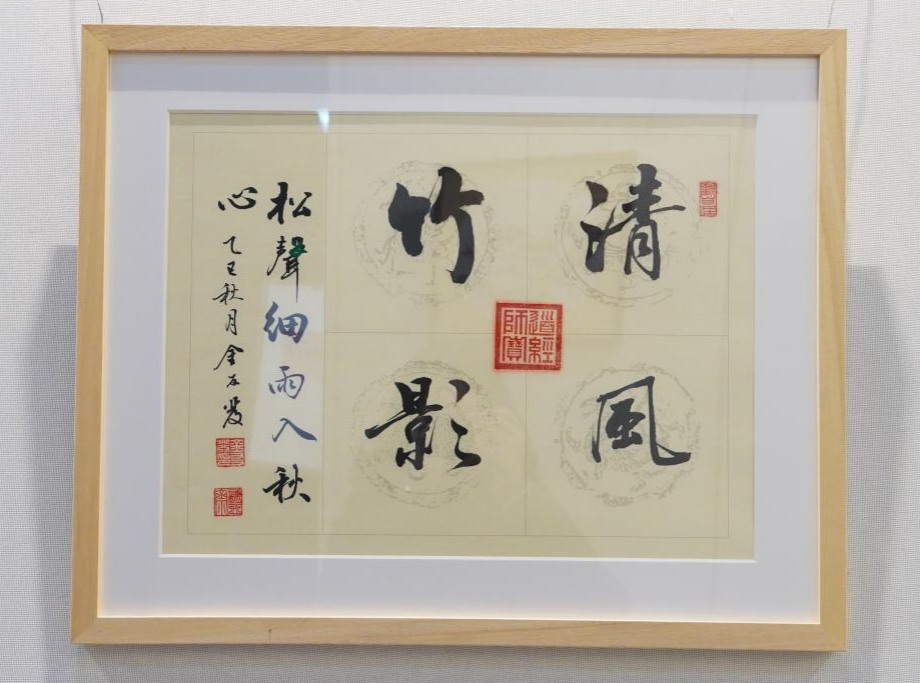 清風
竹影
松聲細雨入秋
心
乙巳秋月金
道經
師寶